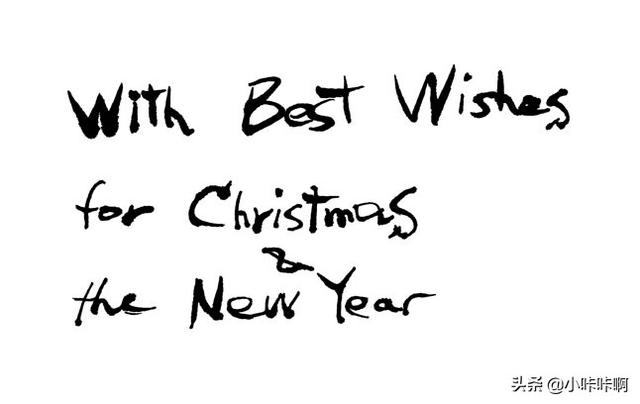 With Best Wishes
for Christmas
&
the New Year
头条 @小咔咔啊